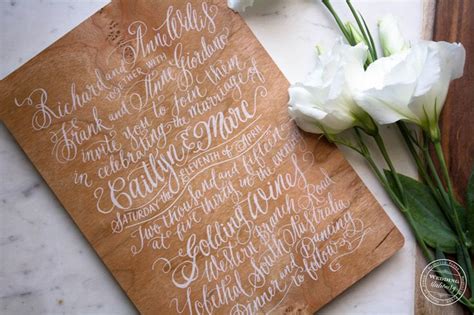 Richard and Anne Wills
TOGETHER WITH
Frank and Anne Giordano
invite you to join them
in celebrating the marriage of
Caitlyn & Moore
SATURDAY THE ELEVENTH OF APRIL
Two thousand and fifteen
at five thirty in the evening
Golding Wines
Western Branch Road
Lobethal South Australia
Dinner and Dancing
to follow
WEDDING